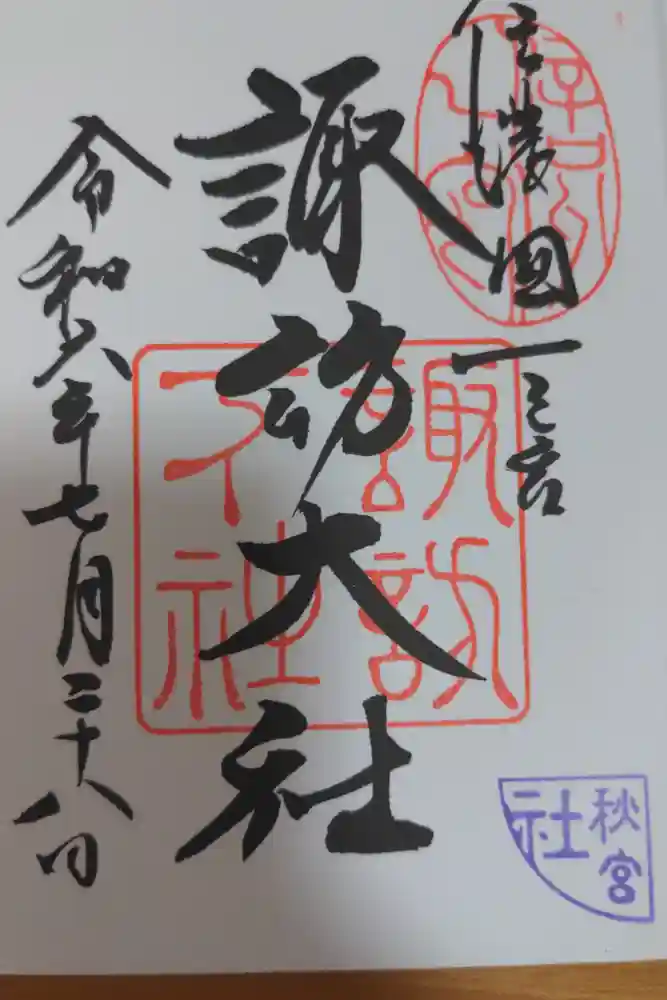 信濃國一之宮
諏訪大社
令和六年七月二十八日
諏訪
大社
秋宮
社